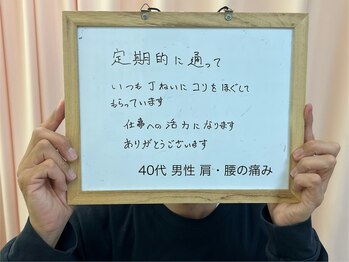 定期的に通って
いつも丁ねいにコリをほぐして
もらっています
仕事への活力になります
ありがとうございます
40代 男性 肩・腰の痛み